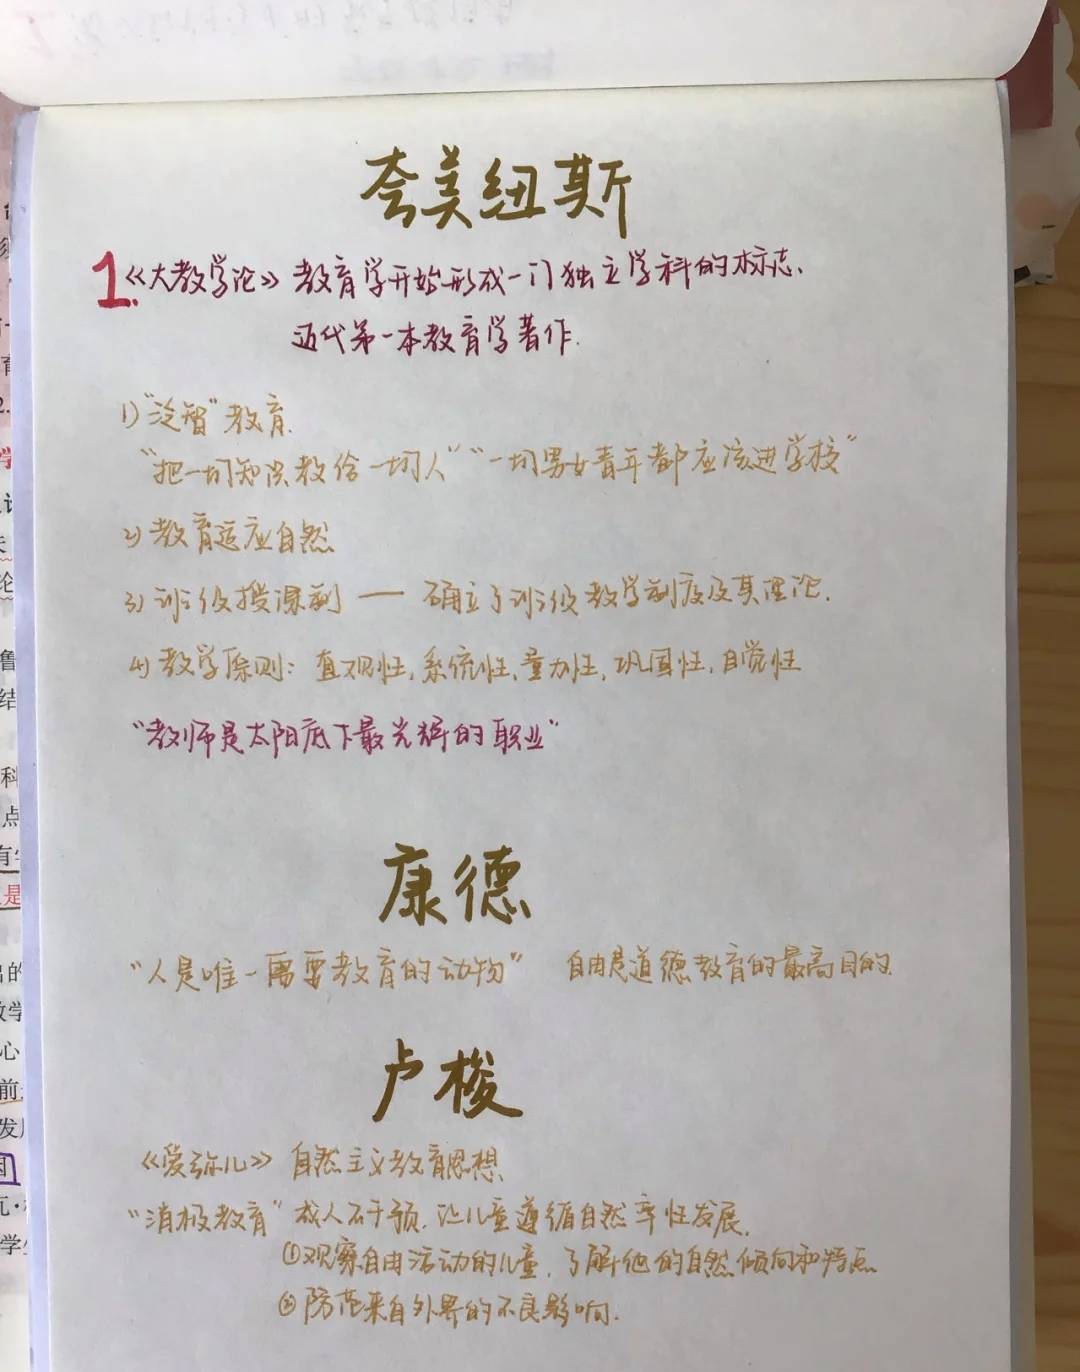 夸美纽斯
1.《大教学论》教育学开始形成一门独立学科的标志.
近代第一本教育学著作.
1)"泛智"教育.
"把一切知识教给一切人""一切男女青年都应该进学校"
2)教育适应自然
3)班级授课制——确立了班级教学制度及其理论.
4)教学原则：直观性,系统性,量力性,巩固性,自觉性
"教师是太阳底下最光辉的职业"
康德
"人是唯一需要教育的动物" 自由是道德教育的最高目的.
卢梭
《爱弥儿》自然主义教育思想.
"消极教育"成人不干预.让儿童遵循自然率性发展.
①观察自由活动的儿童,了解他的自然倾向和特点
②防范来自外界的不良影响.